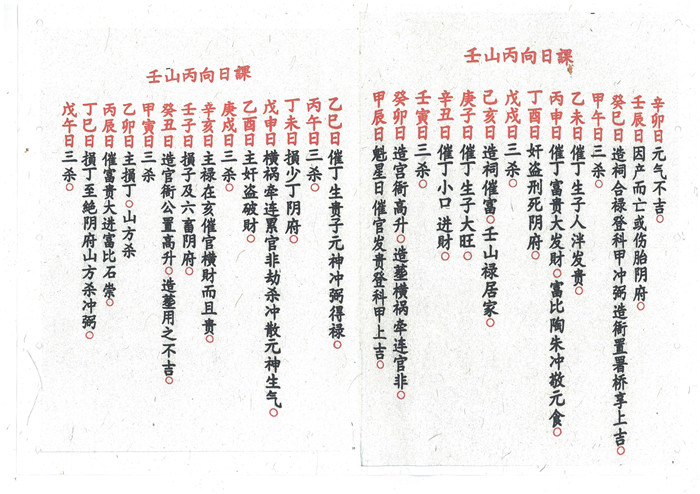 壬山丙向日課
辛卯日元气不吉○
壬辰日因产而亡或伤胎阴府○
癸巳日造祠合禄登科甲冲弼造衙置署桥享上吉○
甲午日三杀○
乙未日催丁生子人泮发贵○
丙申日催丁富贵大发财○富比陶朱冲散元食○
丁酉日奸盗刑死阴府○
戊戌日三杀○
己亥日造祠催富○壬山禄居家○
庚子日催丁生子大旺○
辛丑日催丁小口进财○
壬寅日三杀○
癸卯日造官衙高升○造葬横祸牵连官非○
甲辰日魁星日催官发贵登科甲上吉○
壬山丙向日課
乙巳日催丁生贵子元神冲弼得禄○
丙午日三杀○
丁未日損少丁阴府○
戊申日横祸牵连累官非劫杀冲散元神生气○
乙酉日主奸盗破財○
庚戌日三杀○
辛亥日主禄在亥催官横財而且貴○
壬子日損子及六畜阴府○
癸丑日造官衙公置高升○造葬用之不吉○
甲寅日三杀
乙卯日主損丁○山方杀
丙辰日催富贵大进富比石崇○
丁巳日損丁至絶阴府山方杀冲弼○
戊午日三杀○